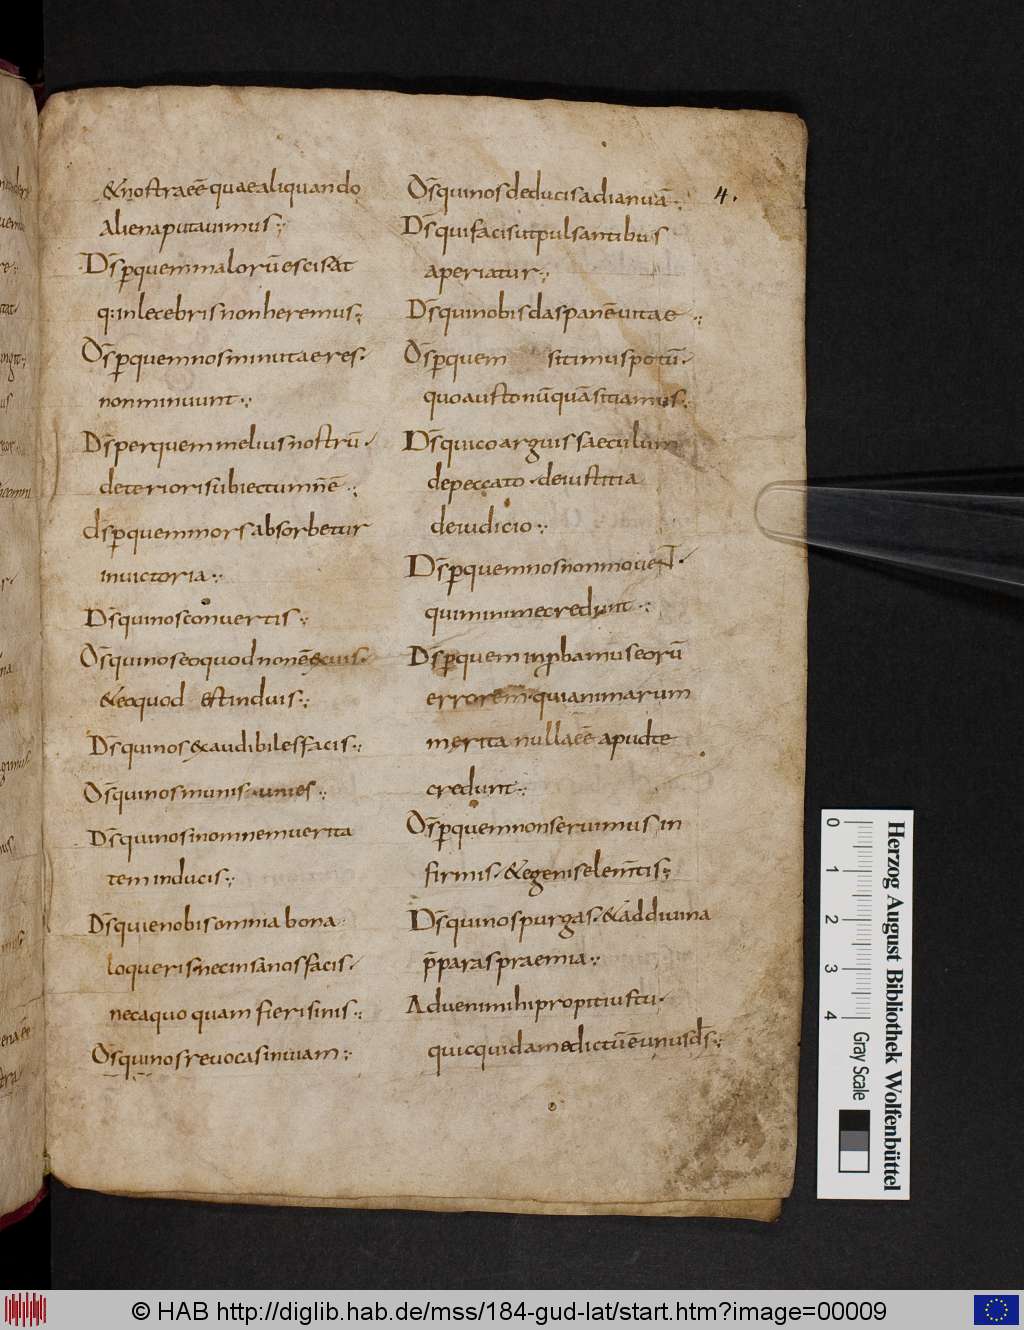 & nostra eē quae aliquando
aliena putauimus
D̄s p̱ quem malorū escis at
q: inlecebris non heremus
D̄s p̱ quem nos minutae res
non minuunt
D̄s per quem melius nostrū
deteriori subiectum n̄ ē
d̄s p̱ quem mors absorbetur
in uictoria
D̄s qui nos conuertis
D̄s qui nos eo quod non ē &cuis
& eo quod est induis
D̄s qui nos &caudibiles facis
D̄s qui nos munis · unies
D̄s qui nos in omnem uerita
tem inducis
D̄s qui e nobis omnia bona
loqueris nec insanos facis
nec a quo quam fieri sinis
D̄s qui nos reuocas in uiam
D̄s qui nos deducis ad ianuā 4.
D̄s qui facis ut pulsantibus
aperiatur
D̄s qui nobis das panē uitae
D̄s p̱ quem sitimus potū
quo austo nūquā sitiamus
D̄s qui co arguis saeculum
de peccato · de iustitia
de iudicio
D̄s p̱ quem nos non mouent
qui minime credunt
D̄s p̱ quem inp̱bamus eorū
errorem · qui animarum
merita nulla eē apud te
credunt
D̄s p̱ quem non seruimus in
firmis · & egenis elem̄tis
D̄s qui nos purgas · & ad diuina
p̄paras praemia
Adueni mihi propitius tu
quicquid a me dictū ē unus d̄s
0 1 2 3 4
Gray Scale
Herzog August Bibliothek Wolfenbüttel
© HAB http://diglib.hab.de/mss/184-gud-lat/start.htm?image=00009